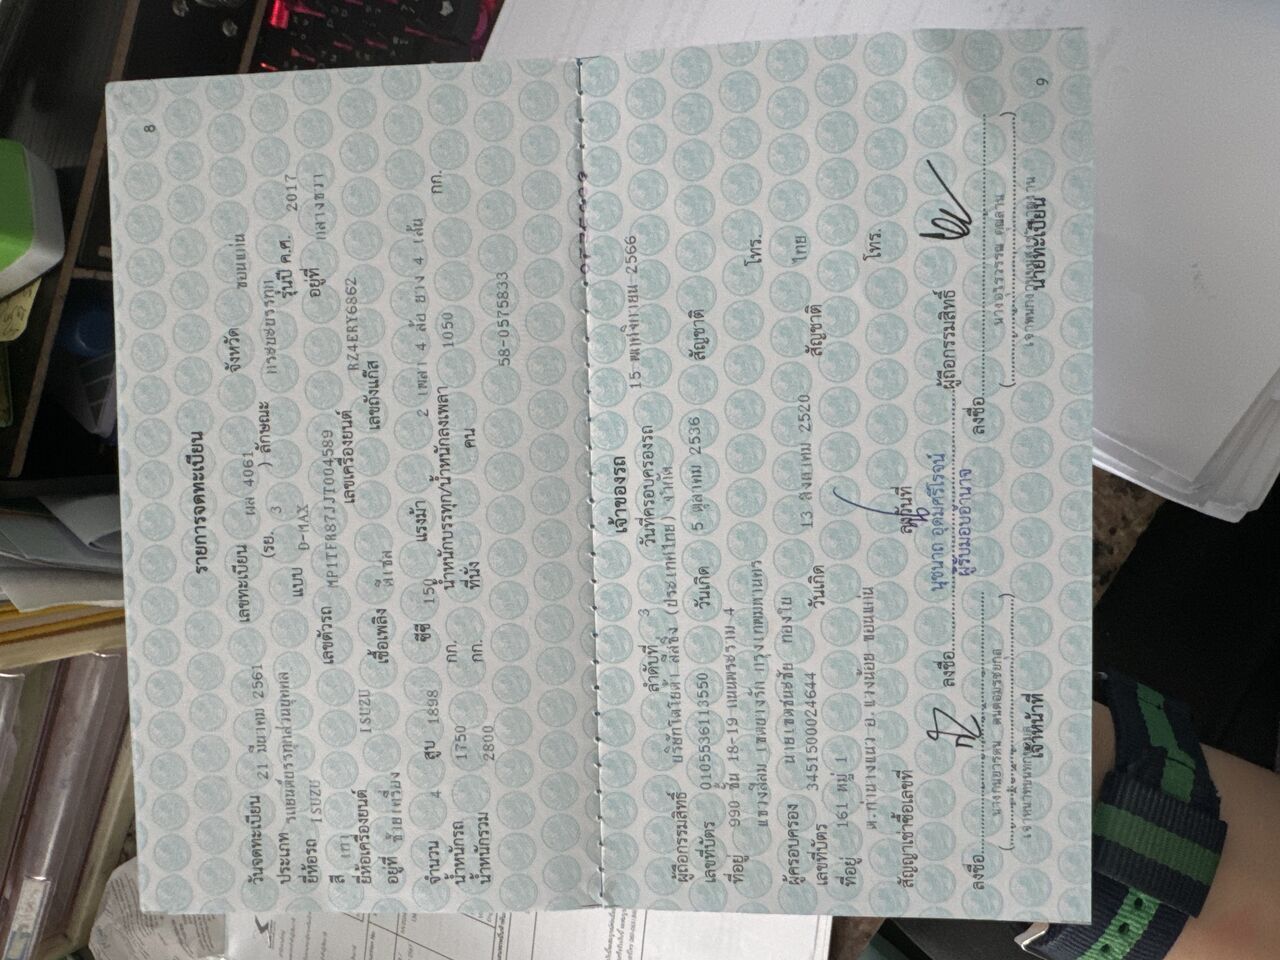 8
รายการจดทะเบียน
วันจดทะเบียน 21 มีนาคม 2561 เลขทะเบียน ผล 4061 จังหวัด ขอนแก่น
ประเภท รถยนต์บรรทุกส่วนบุคคล (รย. 3 ) ลักษณะ กระบะบรรทุก
ยี่ห้อรถ ISUZU แบบ D-MAX รุ่นปี ค.ศ. 2017
สี เทา เลขตัวรถ MP1TFR87JJT004589 อยู่ที่ กลางขวา
ยี่ห้อเครื่องยนต์ ISUZU เลขเครื่องยนต์ RZ4ERY6862
อยู่ที่ ซ้ายเครื่อง เชื้อเพลิง ดีเซล เลขถังแก๊ส
จำนวน 4 สูบ 1898 ซีซี 150 แรงม้า 2 เพลา 4 ล้อ ยาง 4 เส้น
น้ำหนักรถ 1750 กก. น้ำหนักบรรทุก/น้ำหนักลงเพลา 1050 กก.
น้ำหนักรวม 2800 กก. ที่นั่ง คน
58-0575833
เจ้าของรถ
ลำดับที่ 3 วันที่ครอบครองรถ 15 พฤศจิกายน 2566
ผู้ถือกรรมสิทธิ์ บริษัทโตโยต้า ลีสซิ่ง (ประเทศไทย) จำกัด
เลขที่บัตร 0105536113550 วันเกิด 5 ตุลาคม 2536 สัญชาติ
ที่อยู่ 990 ชั้น 18-19 ถนนพระราม 4
แขวงสีลม เขตบางรัก กรุงเทพมหานคร โทร.
ผู้ครอบครอง นายเขตชนะชัย ทองใบ
เลขที่บัตร 3451500024644 วันเกิด 13 สิงหาคม 2520 สัญชาติ ไทย
ที่อยู่ 161 หมู่ 1
ต.ก้านางแนว อ.แวงน้อย ขอนแก่น โทร.
สัญญาเช่าซื้อเลขที่ ลงวันที่
ลงชื่อ ผู้ถือกรรมสิทธิ์
นุชนาถ อุดมศรีโรจน์
ผู้รับมอบอำนาจ
ลงชื่อ ลงชื่อ
เจ้าหน้าที่ นายทะเบียน
9